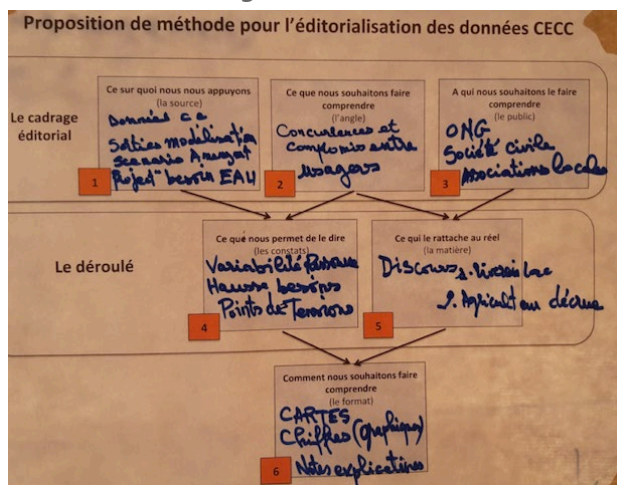 Proposition de méthode pour l'éditorialisation des données CECC
Le cadrage
éditorial
Ce sur quoi nous nous appuyons
(la source)
Données
Sorties modélisation
Scenario
Project° besoin EAU
1
Ce que nous souhaitons faire
comprendre
(l'angle)
Concurrences et
compromis entre
usagers
2
A qui nous souhaitons le faire
comprendre
(le public)
ONG
Société civile
Associations locales
3
Le déroulé
Ce que nous permet de le dire
(les constats)
Variabilité
Hausse besoins
Points de Tensions
4
Ce qui le rattache au réel
(la matière)
Discours 1.
2. décrue
5
Comment nous souhaitons faire
comprendre
(le format)
CARTES
Chiffres (Graphiques)
Notes explicatives
6